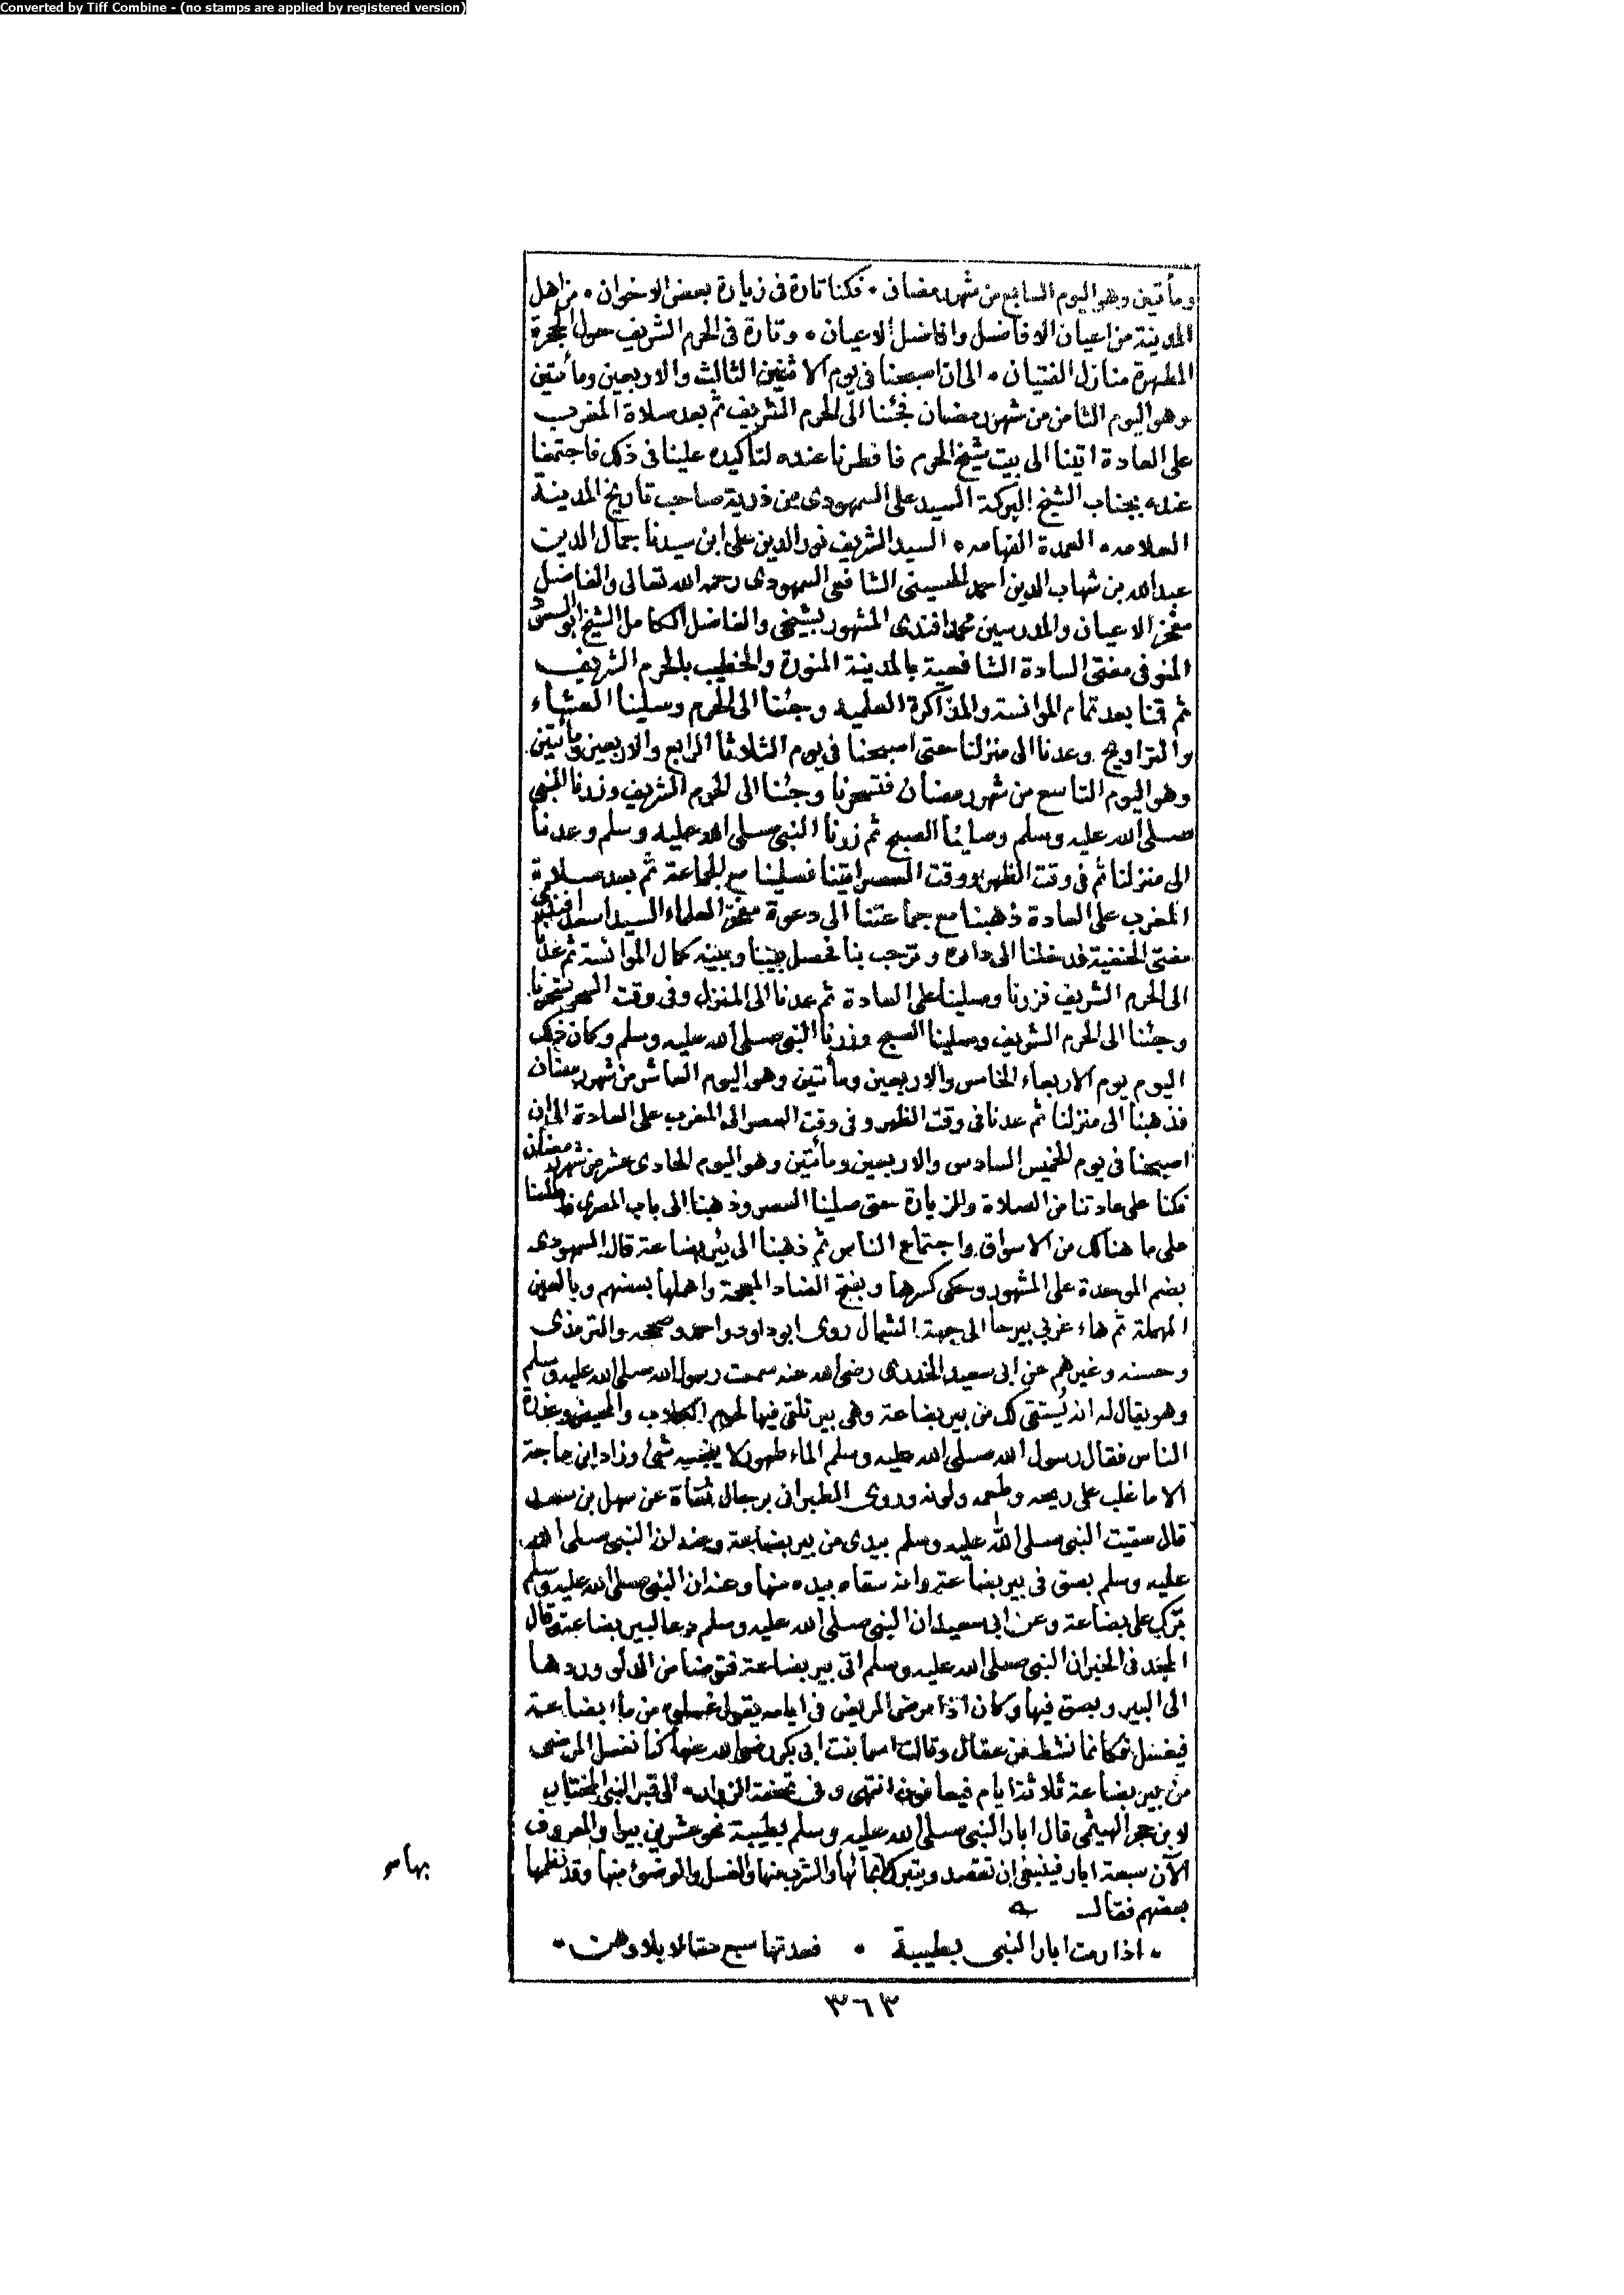 Converted by Tiff Combine - (no stamps are applied by registered version)
ومأتين وهو اليوم السابع من شهر رمضان • فكنا تارة فى زيارة بعض الاخوان • من اهل
المدينة من اعيان الافاضل وافاضل الاعيان • وتارة فى الحرم الشريف حول الحجرة
المطهرة منازل الفتيان • الى ان اصبحنا فى يوم الاثنين الثالث والاربعين ومأتين
وهو اليوم الثامن من شهر رمضان فجئنا الى الحرم الشريف ثم بعد صلاة المغرب
على العادة اتينا الى بيت شيخ الحرم فافطرنا عنده لتاكيده علينا فى ذلك فاجتمعنا
عنده بجناب الشيخ البركة السيد على السمهودى من ذرية صاحب تاريخ المدينة
العلامه • العمدة الفهامه • السيد الشريف نور الدين على ابن سيدنا جمال الدين
عبدالله بن شهاب الدين احمد الحسينى الشافعى السمهودى رحمه الله تعالى والفاضل
مفخر الاعيان والمدرسين محمد افندى المشهور بشيخى والفاضل الكامل الشيخ ابو السعود
المنوفى مفتى السادة الشافعية بالمدينة المنورة والخطيب بالحرم الشريف
ثم قمنا بعد تمام الموانسة والمذاكرة العلميه وجئنا الى الحرم وصلينا العشاء
والتراويح وعدنا الى منزلنا حتى اصبحنا فى يوم الثلاثا الرابع والاربعين ومأتين
وهو اليوم التاسع من شهر رمضان فتسحرنا وجئنا الى الحرم الشريف وزرنا النبى
صلى الله عليه وسلم وصلينا الصبح ثم زرنا النبى صلى الله عليه وسلم وعدنا
الى منزلنا ثم فى وقت الظهر ووقت العصر اتينا فصلينا مع الجماعة ثم بعد صلاة
المغرب على العادة ذهبنا مع جماعتنا الى دعوة مفخر العلماء السيد اسعد افندى
مفتى الحنفية فدخلنا الى داره وترحب بنا فحصل بيننا وبينه كمال الموانسة ثم عدنا
الى الحرم الشريف فزرنا وصلينا على العادة ثم عدنا الى المنزل وفى وقت السحر تسحرنا
وجئنا الى الحرم الشريف وصلينا الصبح وزرنا النبى صلى الله عليه وسلم وكان ذلك
اليوم يوم الاربعاء الخامس والاربعين ومأتين وهو اليوم العاشر من شهر رمضان
فذهبنا الى منزلنا ثم عدنا فى وقت الظهر وفى وقت العصر الى المغرب على العادة الى ان
اصبحنا فى يوم الخميس السادس والاربعين ومأتين وهو اليوم الحادى عشر من شهر رمضان
فكنا على عادتنا من الصلاة والزيارة حتى صلينا العصر وذهبنا الى باب المصرى فاطلعنا
على ما هنالك من الاسواق واجتماع الناس ثم ذهبنا الى بئر بضاعة قال السمهودى
بضم الموحدة على المشهور وحكى كسرها وبفتح الضاد المعجمة واهملها بعضهم وبالعين
المهملة ثم هاء غربى بيرحا الى جهة الشمال روى ابو داود واحمد وصححه والترمذى
وحسنه وغيرهم عن ابى سعيد الخدرى رضى الله عنه سمعت رسول الله صلى الله عليه وسلم
وهو يقال له انه يُستقى لك من بير بضاعة وهى بير تلقى فيها لحوم الكلاب والمحيض وعذرة
الناس فقال رسول الله صلى الله عليه وسلم الماء طهور لا ينجسه شئ وزاد ابن ماجة
الا ما غلب على ريحه وطعمه ولونه وروى الطبرانى برجال ثقاة عن سهل بن سعد
قال سقيت النبى صلى الله عليه وسلم بيدى من بير بضاعة وعنه ان النبى صلى الله
عليه وسلم بصق فى بير بضاعة وانه سقاه بيده منها وعنه ان النبى صلى الله عليه وسلم
برّك على بضاعة وعن ابى سعيد ان النبى صلى الله عليه وسلم دعا لبير بضاعة وقال
المجد فى الخبر ان النبى صلى الله عليه وسلم اتى بير بضاعة فتوضا من الدلو وردها
الى البير وبصق فيها وكان اذا مرض المريض فى ايامه يقول غسلوه من ماء بضاعة
فيغسل فكانما نشط من عقال وقالت اسما بنت ابى بكر رضى الله عنها كنا نغسل المرضى
من بير بضاعة ثلاثة ايام فيعافون انتهى وفى تحفة الزوار • الى قبر النبى المختار
لابن حجر الهيثمى قال ابار النبى صلى الله عليه وسلم بطيبة نحو عشرين بيرا والمعروف
الآن سبعة ابار فينبغى ان تقصد ويتبرك بمائها والشرب منها والغسل والوضوئ منها وقد نظمها
بعضهم فقال
• اذا رمت ابار النبى بطيبة • فعدتها سبع مقالا بلا وهن •
٣٦٣